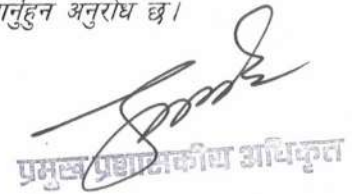 गर्नुहुन अनुरोध छ।
प्रमुख प्रशासकीय अधिकृत